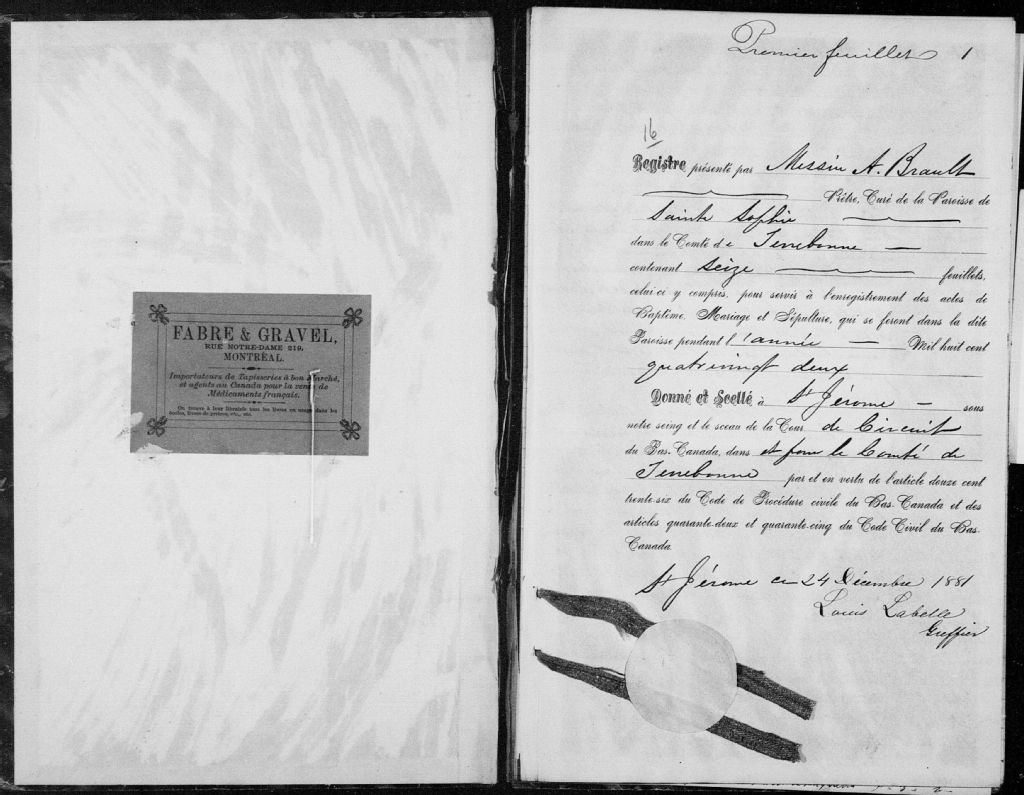 FABRE & GRAVEL,
RUE NOTRE-DAME 219,
MONTRÉAL.
Importateurs de Tapisseries à bon Marché,
et agents au Canada pour la vente de
Médicaments français.
On trouve à leur librairie tous les livres en usage dans les
écoles, livres de prières, etc., etc.
Premier feuillet 1
16
Registre présenté par Messire A. Brault
Prêtre, Curé de la Paroisse de
Sainte Sophie
dans le Comté de Terrebonne —
contenant seize feuillets,
celui-ci y compris, pour servir à l'enregistrement des actes de
Baptême, Mariage et Sépulture, qui se feront dans la dite
Paroisse pendant l'année — Mil huit cent
quatrevingt deux
Donné et Scellé à St Jérome — sous
notre seing et le sceau de la Cour de Circuit
du Bas-Canada, dans et pour le Comté de
Terrebonne par et en vertu de l'article douze cent
trente-six du Code de Procédure civile du Bas-Canada et des
articles quarante-deux et quarante-cinq du Code Civil du Bas-
Canada.
St Jérome ce 24 Décembre 1881
Louis Labelle
Greffier